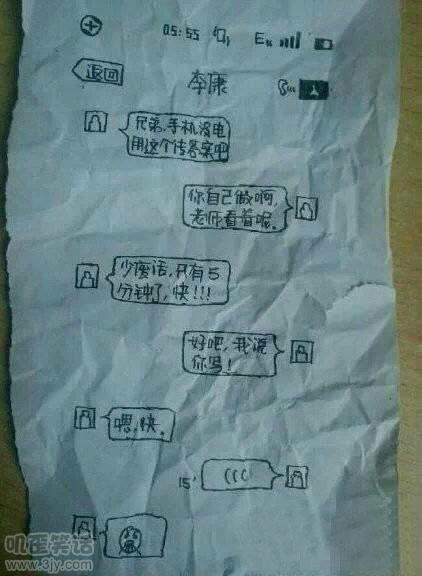 05:55 E
返回
李康
兄弟,手机没电
用这个传答案吧
你自己做啊,
老师看着呢.
少废话,只有5
分钟了,快!!!
好吧,我说
你写!
嗯,快.
15"
叽歪笑话
www.3jy.com